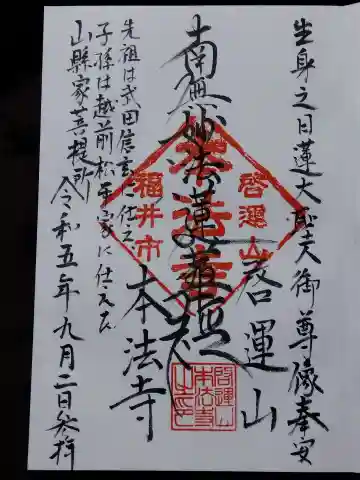 生身之日蓮大聖人御尊像奉安
啓運山
南無妙法蓮華経
本法寺
先祖は武田信玄に仕え
子孫は越前松平家に仕えた
山縣家菩提所
令和五年九月二日参拝
啓運山
本法寺
福井市
啓運山
本法寺